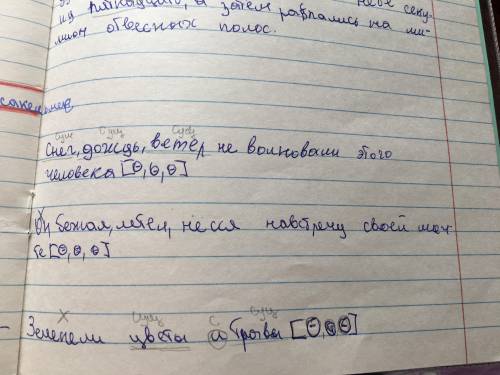 из
а затем распались на ми-
мион отвесных полос.
сущ сущ сущ
Снег, дождь, ветер не волновали этого
человека [O, O, O]
Он бежал, летел, несся навстречу своей меч-
те [O, O, O]
Х сущ с сущ
- Зеленели цветы и травы [O, O O]